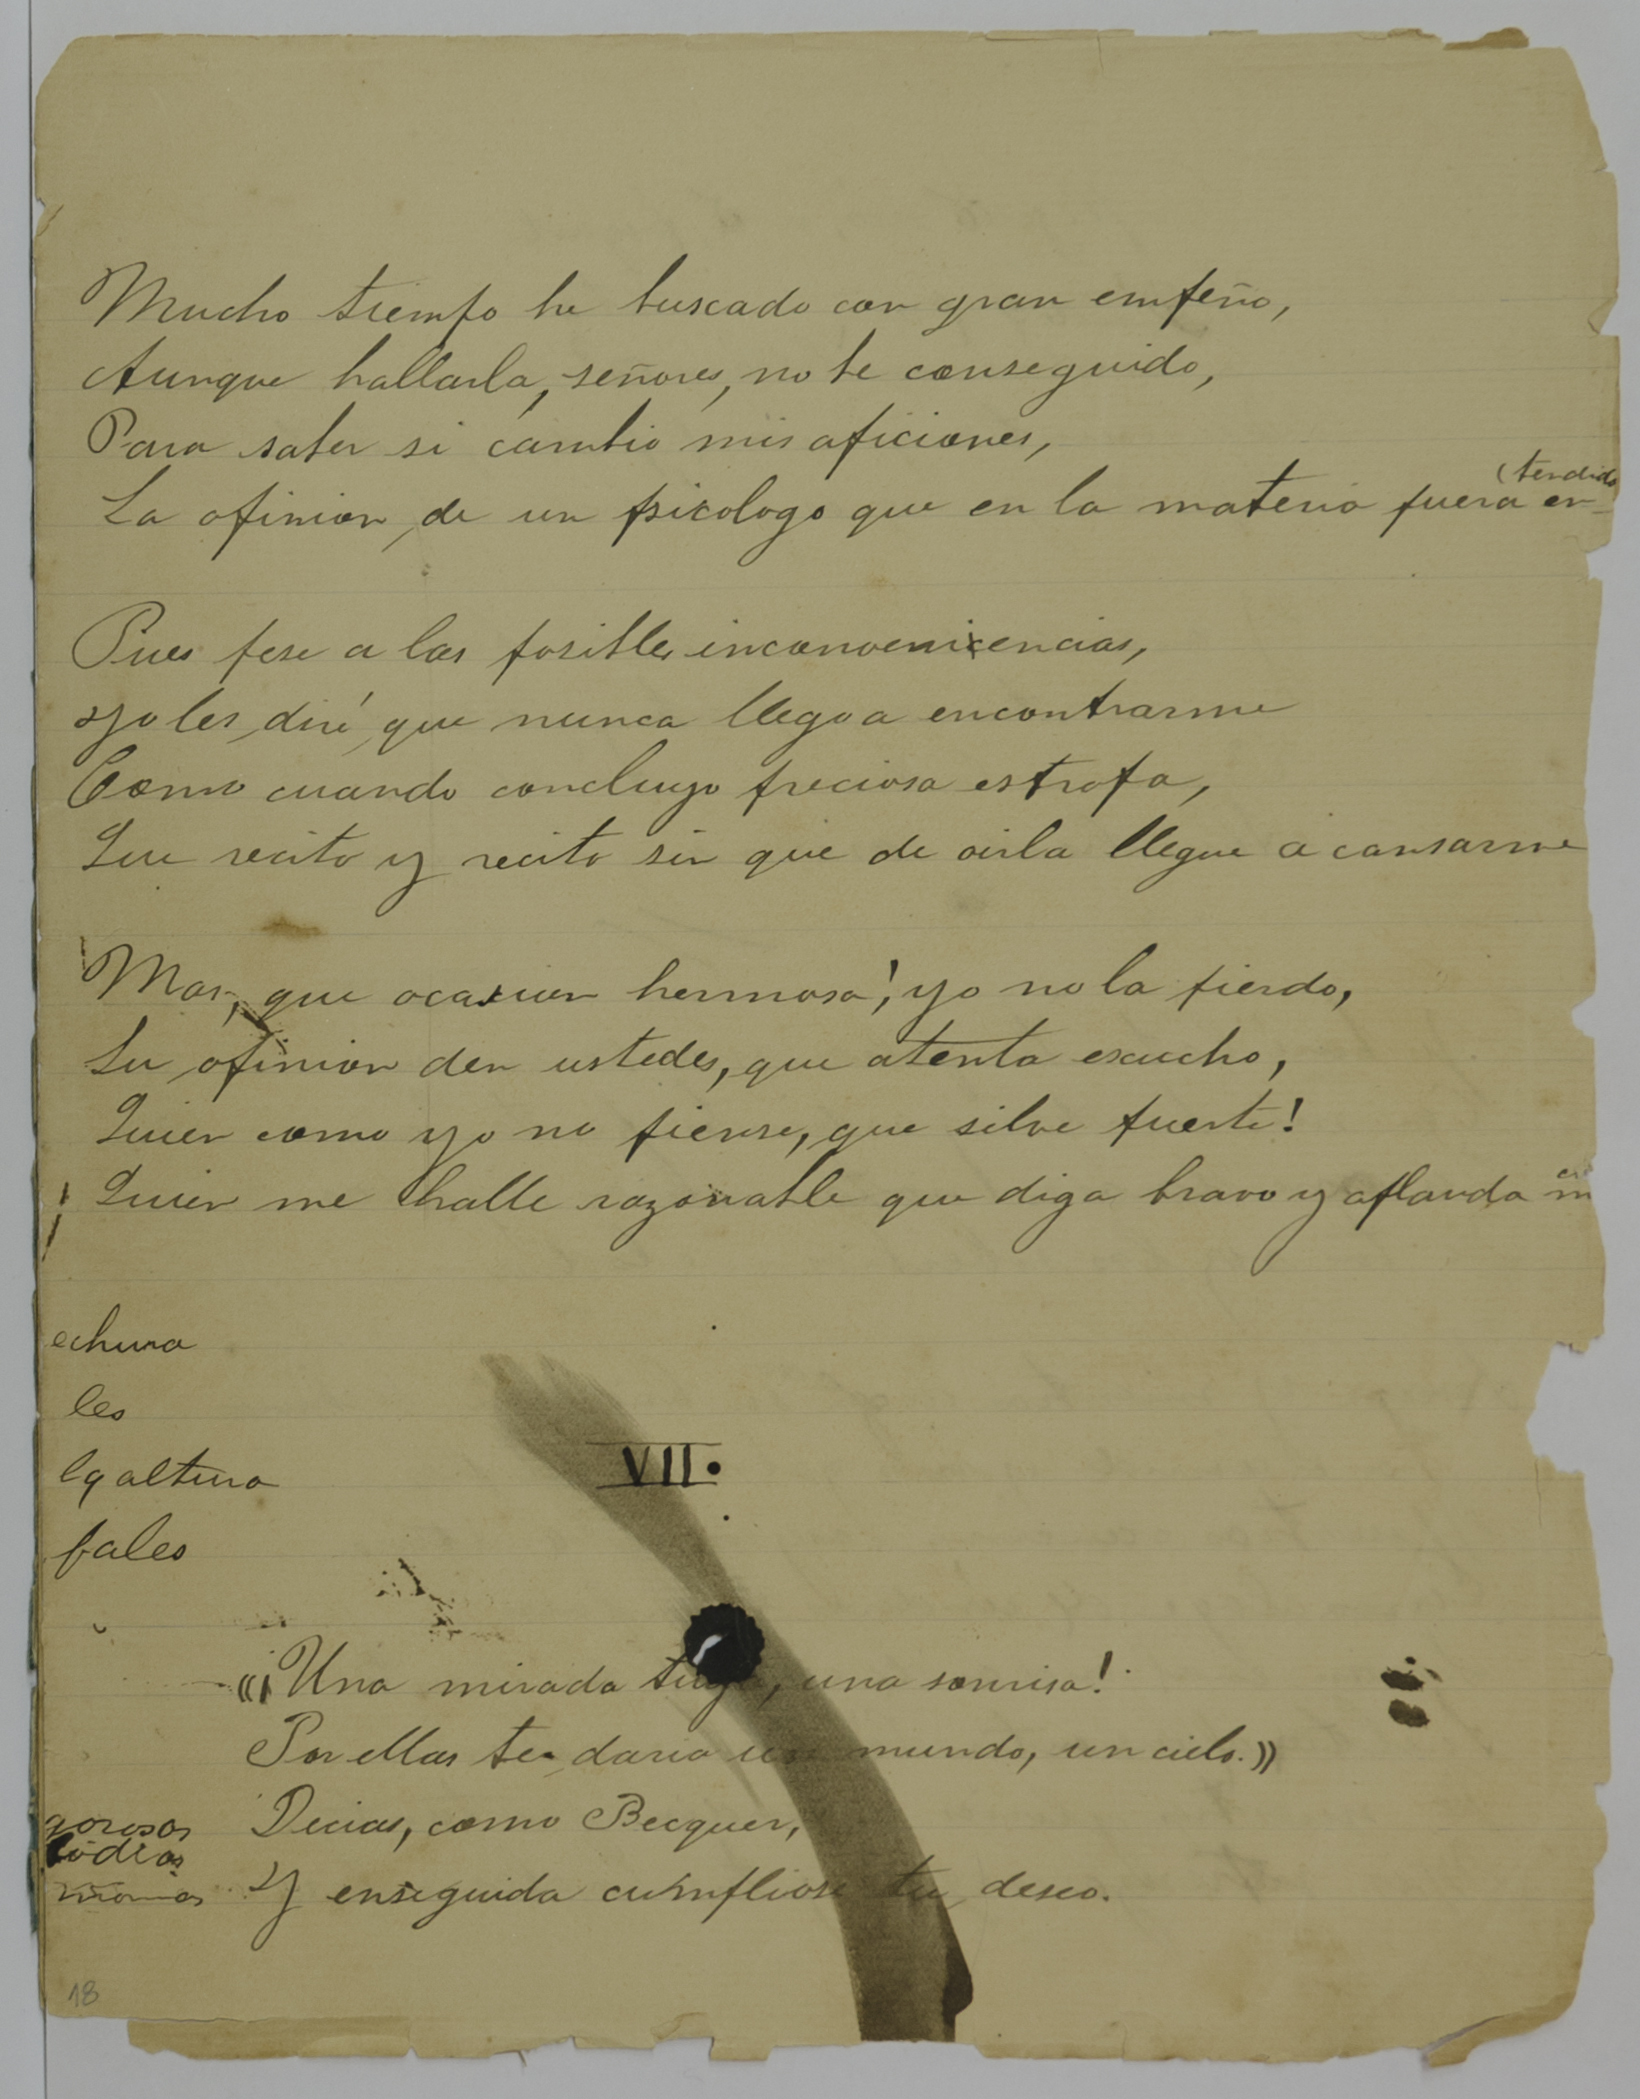 Mucho tiempo he buscado con gran empeño,
Aunque hallarla, señores, no he conseguido,
Para saber si cambio mis aficiones,
(tendido
La opinion, de un psicologo que en la materia fuera en-
Pues pese a las posibles inconvenicencias,
yo les diré, que nunca llego a encontrarme
Como cuando concluyo preciosa estrofa,
Que recito y recito sin que de oirla llegue a cansarme
Mas, que ocasion hermosa! yo no la pierdo,
Su opinion den ustedes, que atenta escucho,
Quien como yo no piense, que silve fuerte!
Quien me halle razonable que diga bravo y aplauda
echura
les
la altura
pales
VII.
"¡Una mirada tuya, una sonrisa!
Por ellas te daria un mundo, un cielo."
Decias, como Becquer,
Y enseguida cumpliose tu deseo.
gorosos
18